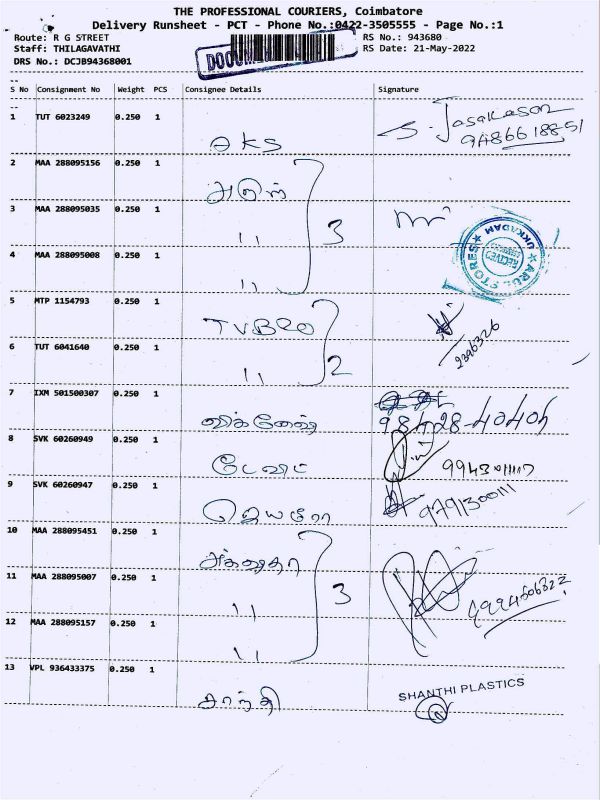 THE PROFESSIONAL COURIERS, Coimbatore
Delivery Runsheet - PCT - Phone No.:0422-3505555 - Page No.:1
Route: R G STREET RS No.: 943680
Staff: THILAGAVATHI RS Date: 21-May-2022
DRS No.: DCJB94368001
S No Consignment No Weight PCS Consignee Details Signature
1 TUT 6023249 0.250 1
aks S. 
2 MAA 288095156 0.250 1
அருள்
3 MAA 288095035 0.250 1
" 3
4 MAA 288095008 0.250 1
ARUL STORES UKKADAM RECEIVED
"
5 MTP 1154793 0.250 1
TVB20
6 TUT 6041640 0.250 1 2396326
" 2
7 IXM 501500307 0.250 1
விக்னேஷ் 98428-40404
8 SVK 60260949 0.250 1
டேவிட் 9943011117
9 SVK 60260947 0.250 1 9791300111
10 MAA 288095451 0.250 1
11 MAA 288095007 0.250 1
" 3
12 MAA 288095157 0.250 1
"
13 VPL 936433375 0.250 1
சாந்தி SHANTHI PLASTICS